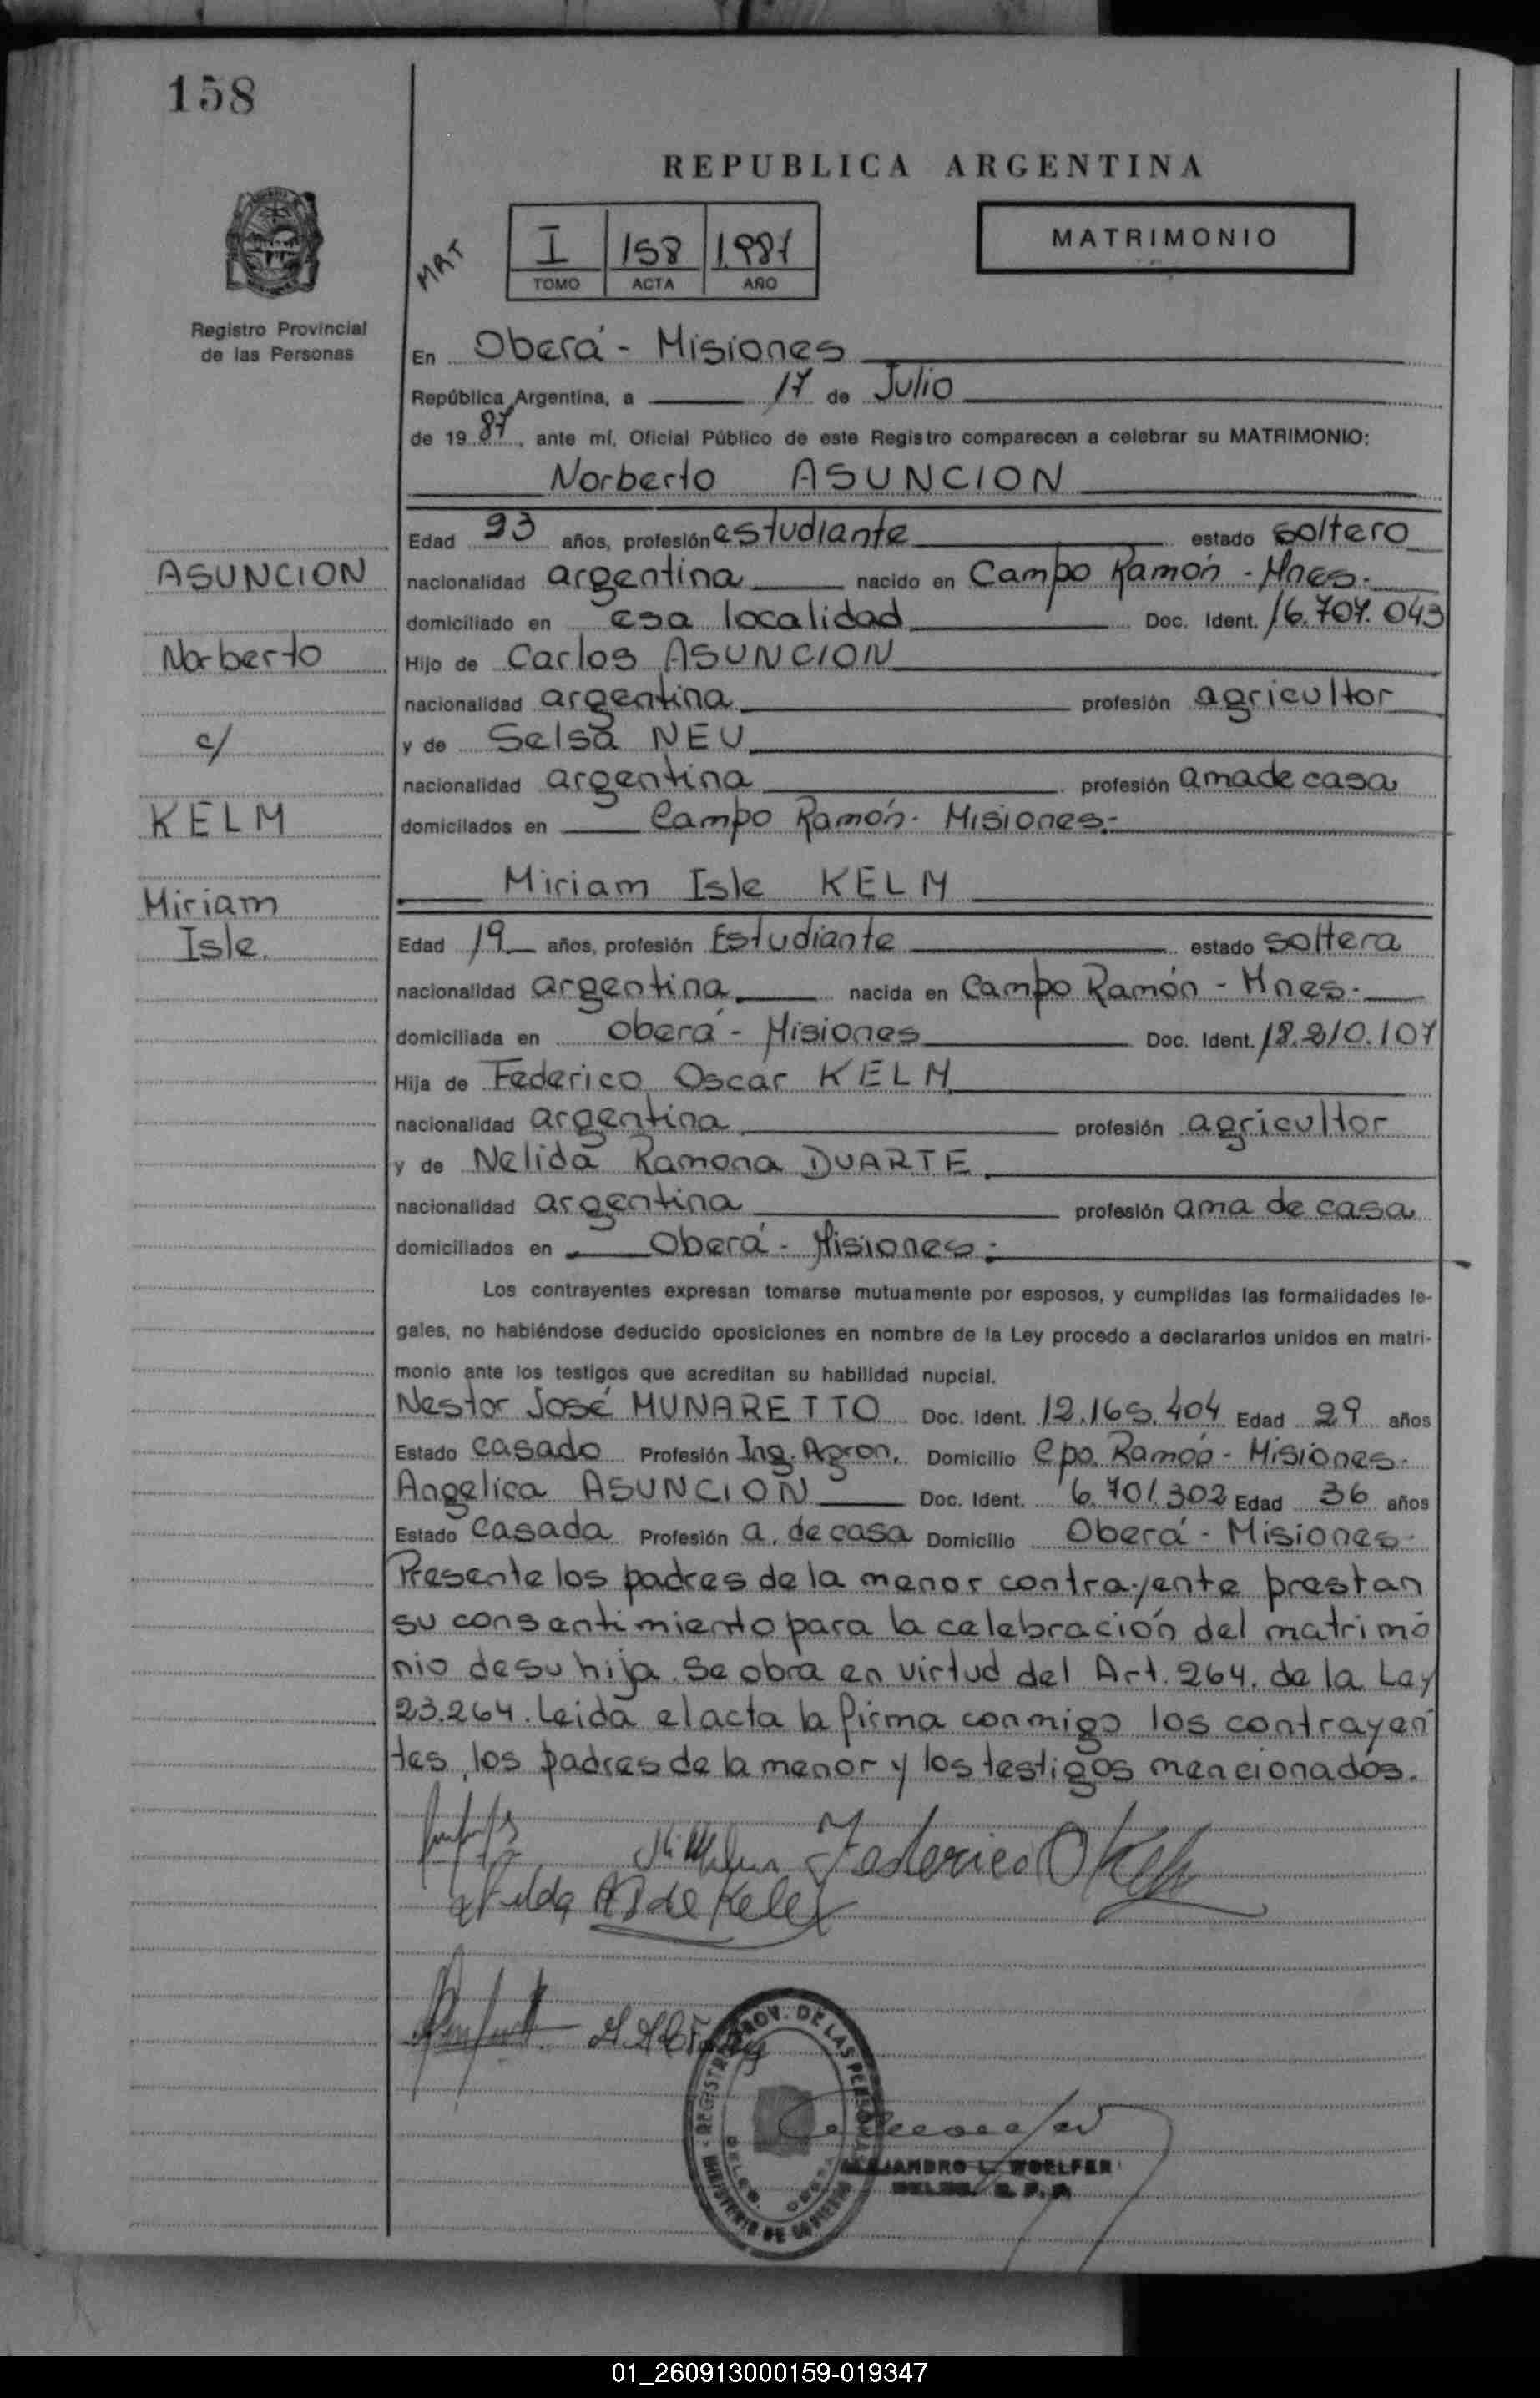 158
REPUBLICA ARGENTINA
MRT
I 158 1987
TOMO ACTA AÑO
MATRIMONIO
Registro Provincial
de las Personas
En Oberá - Misiones
República Argentina, a 17 de Julio
de 19 87, ante mí, Oficial Público de este Registro comparecen a celebrar su MATRIMONIO:
Norberto ASUNCION
Edad 23 años, profesión estudiante estado soltero
ASUNCION
nacionalidad argentina nacido en Campo Ramón - Mnes.
domiciliado en esa localidad Doc. Ident. 16.707.043
Norberto
Hijo de Carlos ASUNCION
nacionalidad argentina profesión agricultor
c/
y de Selsa NEU
nacionalidad argentina profesión ama de casa
KELM
domiciliados en Campo Ramón - Misiones.-
Miriam Isle KELM
Miriam
Isle.
Edad 19 años, profesión Estudiante estado soltera
nacionalidad argentina nacida en Campo Ramón - Mnes.
domiciliada en Oberá - Misiones Doc. Ident. 18.210.107
Hija de Federico Oscar KELM
nacionalidad argentina profesión agricultor
y de Nelida Ramona DUARTE
nacionalidad argentina profesión ama de casa
domiciliados en Oberá - Misiones.-
Los contrayentes expresan tomarse mutuamente por esposos, y cumplidas las formalidades le-
gales, no habiéndose deducido oposiciones en nombre de la Ley procedo a declararlos unidos en matri-
monio ante los testigos que acreditan su habilidad nupcial.
Nestor José MUNARETTO Doc. Ident. 12.165.404 Edad 29 años
Estado casado Profesión Ing. Agron. Domicilio Cpo. Ramón - Misiones.
Angelica ASUNCION Doc. Ident. 6.701.302 Edad 36 años
Estado casada Profesión a. de casa Domicilio Oberá - Misiones.
Presente los padres de la menor contrayente prestan
su consentimiento para la celebración del matrimo
nio de su hija. Se obra en virtud del Art. 264. de la Ley
23.264. Leida el acta la firma conmigo los contrayen
tes, los padres de la menor y los testigos mencionados.
Federico O Kelm
REGISTRO PROV. DE LAS PERSONAS
MINISTERIO DE GOBIERNO
ALEJANDRO L. WOELFER
01_260913000159-019347